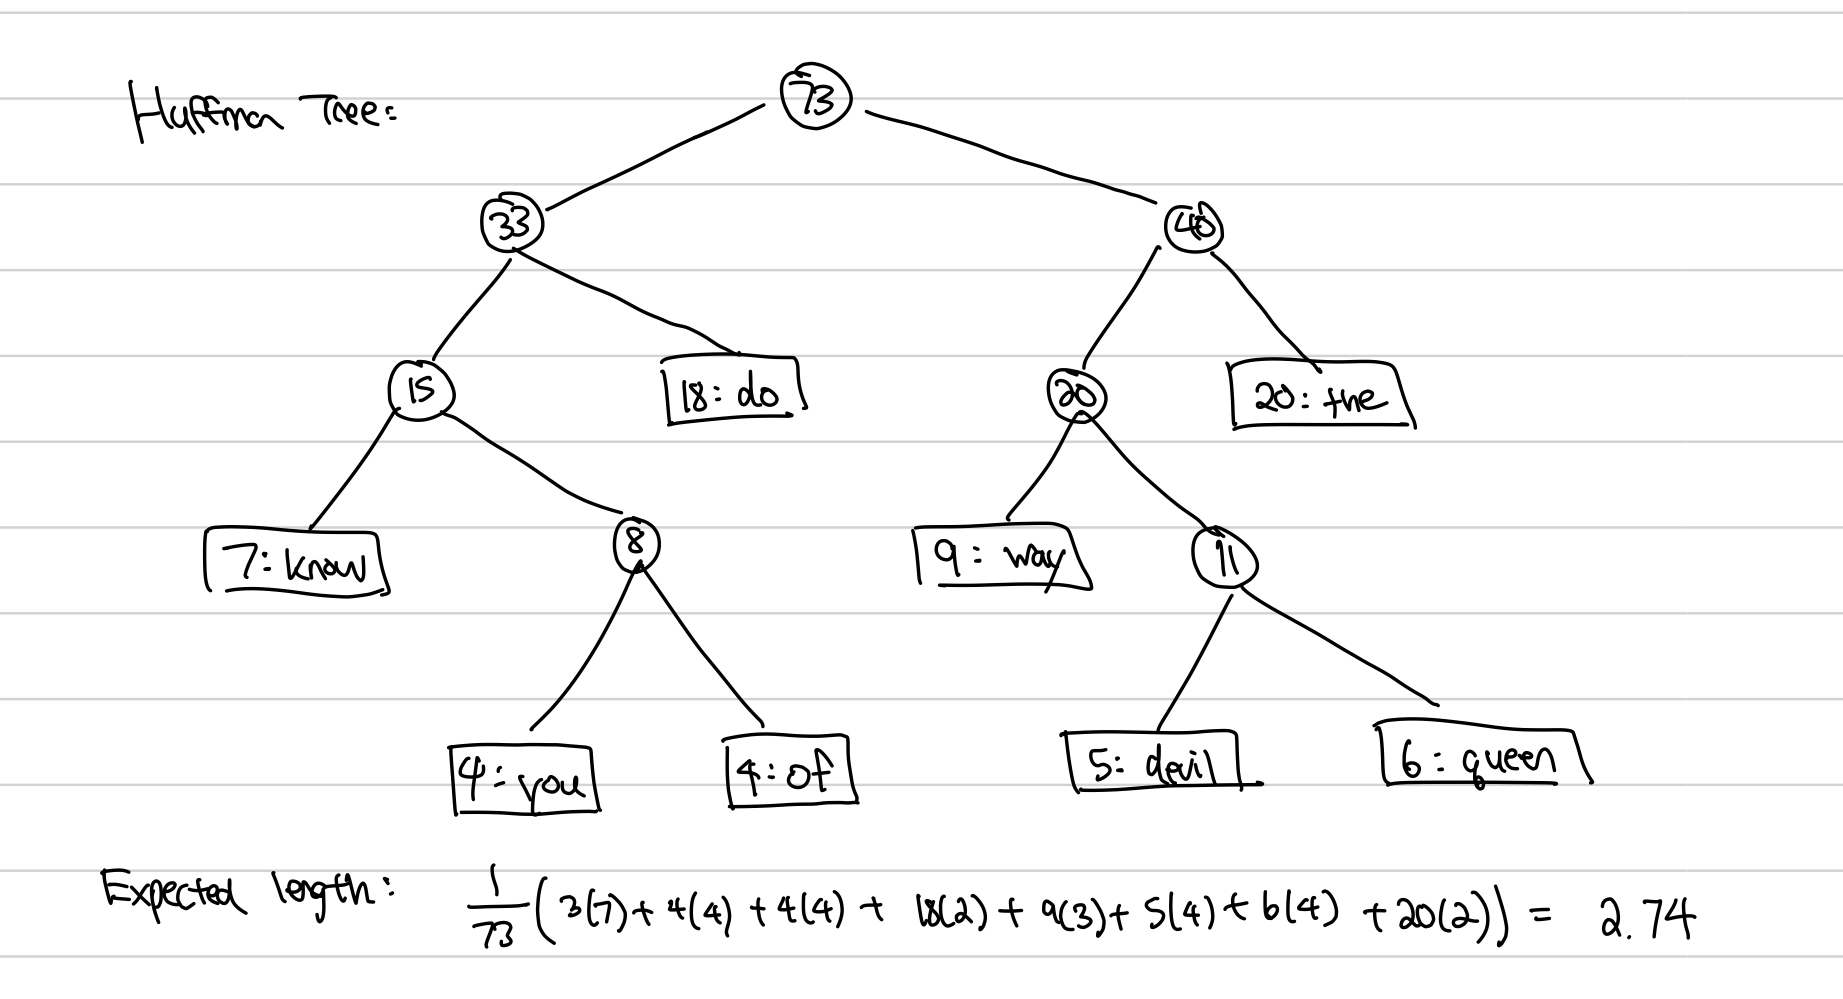 Huffman Tree:
73
33
40
15
18: do
20
20: the
7: know
8
9: way
11
4: you
4: of
5: devil
6: queen
Expected length: 1/73 (3(7) + 4(4) + 4(4) + 18(2) + 9(3) + 5(4) + 6(4) + 20(2)) = 2.74